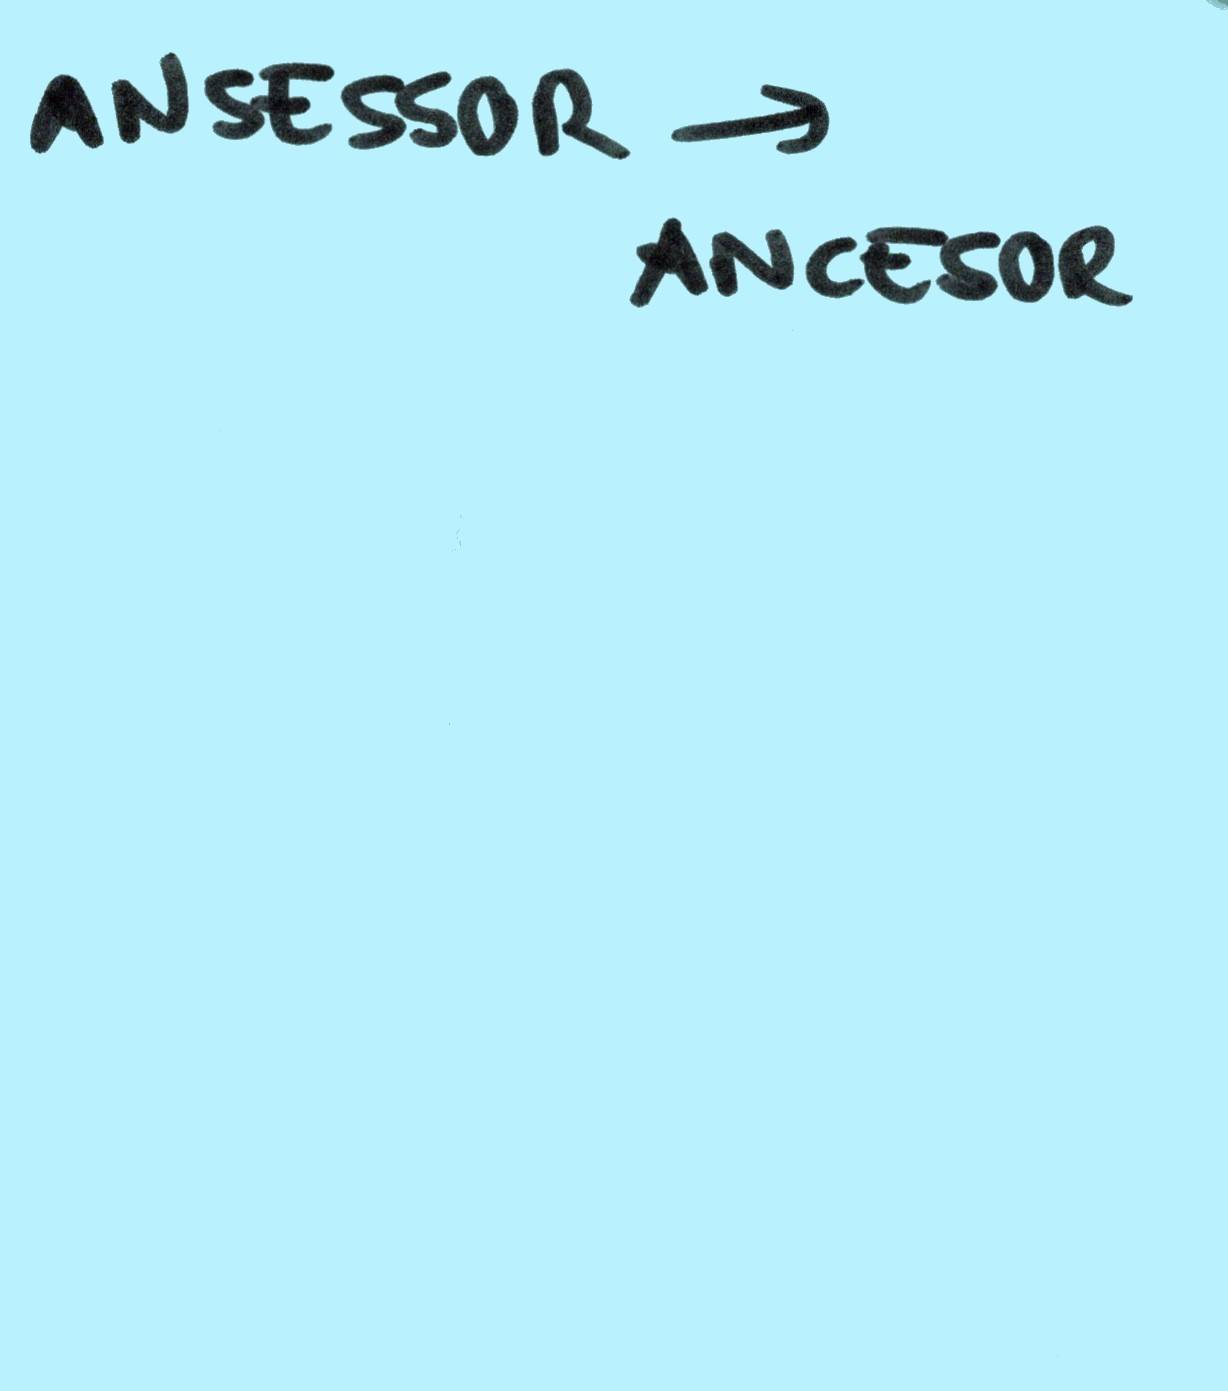 ANSESSOR →
ANCESOR